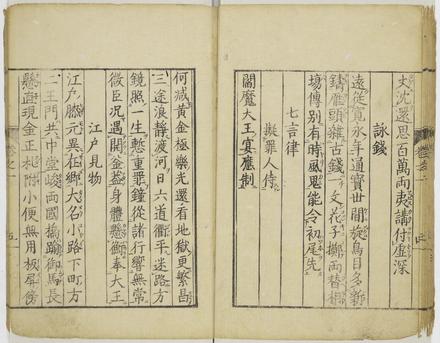 丈沈還思百萬両夷講付虚深
詠錢
遠從寛永年通寳世間旋鳥目多新
鑄雁頭雜古錢一文花子擲両替相
場傳別有時風思能令初尾先
七言律
擬罪人侍
閻魔大王宴應制
何減黄金極樂光還看地獄更繁昌
三途浪静渡河日六道衢平迷路方
鏡照一生慙重罪鐘從諸行響無常
微臣況遇開釜蓋身體懸鄕奉大王
江戸見物
江戸膝元異在鄕大名小路下町方
二王門共中堂峻両國橋踰御馬長
懸直現金正札附小便無用板屏傍